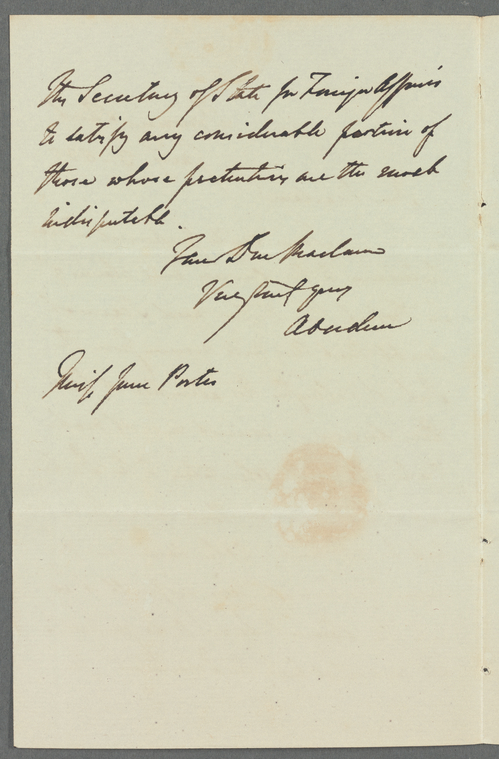 the Secretary of State for Foreign Affairs
to satisfy any considerable portion of
those whose pretensions are the most
indisputable.
I am Dear Madam
Very truly yours
Aberdeen
Miss Jane Porter